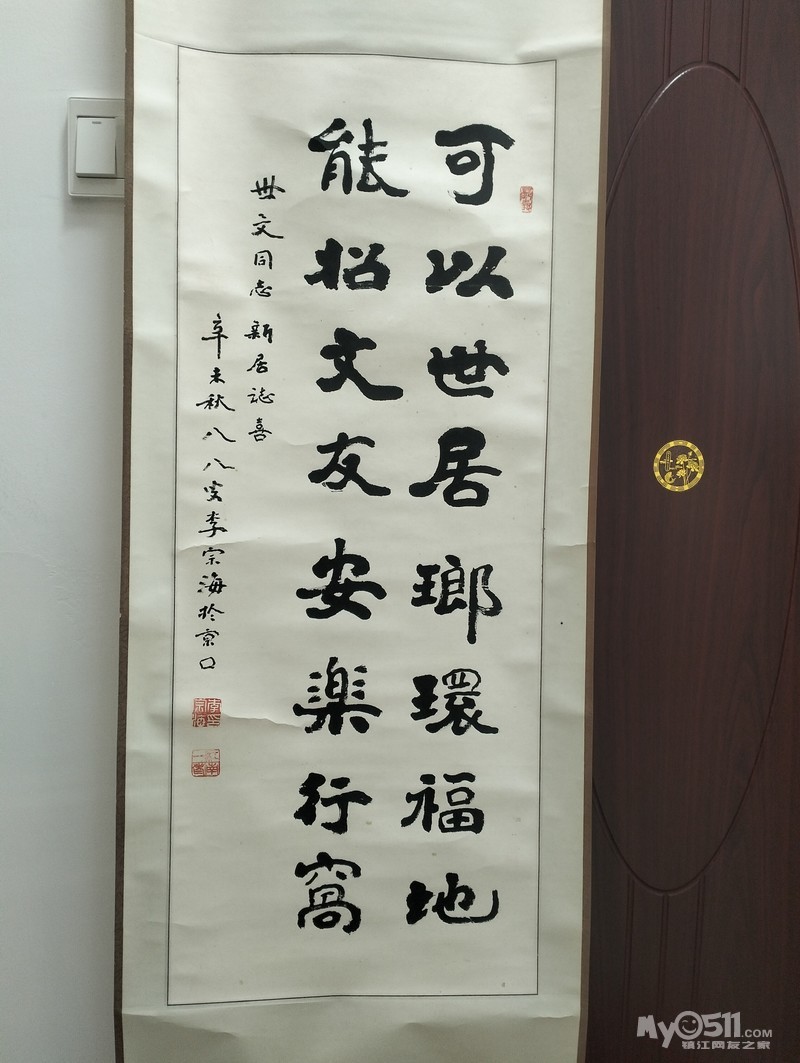 可以世居瑯環福地
能招文友安楽行窩
世文同志 新居誌喜
辛未秋八八叟李宗海於京口
My0511.COM
镇江网友之家